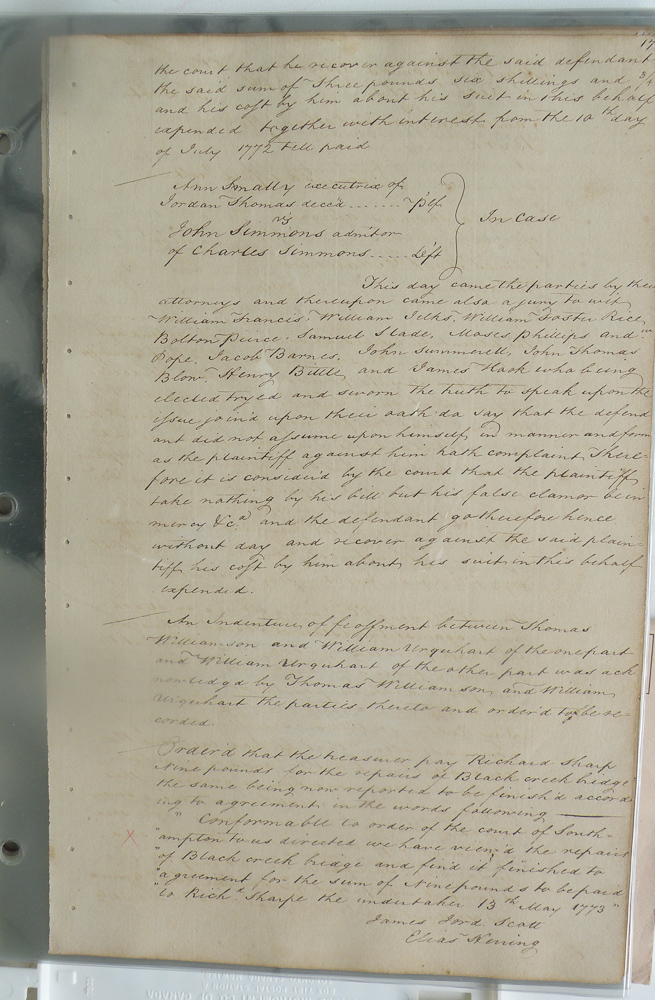 17
the court that he recover against the said defendant
the said sum of Three pounds six shillings and 3/4
and his cost by him about his suit in this behalf
expended together with interest from the 10th day
of July 1772 till paid
Ann Smally executrix of
Jordan Thomas decd ........ Plf
vs
John Simmons admitor
of Charles Simmons ..... Deft
In Case
This day came the parties by their
attorneys and thereupon came also a jury to wit
William Francis, William William Foster Rice,
Bolton Pierce, Samuel Slade, Moses Phillips and
Pope, Jacob Barnes, John Summerell, John Thomas
Blow, Henry Bittle, and James who being
elected tryed and sworn the truth to speak upon the
issue join'd upon their oath do say that the defend
ant did not assume upon himself, in manner and form
as the plaintiff against him hath complaint, There-
fore it is consider'd by the court that the plaintiff
take nothing by his bill but his false clamor be in
mercy &ca and the defendant go therefore hence
without day and recover against the said plain-
tiff his cost by him about his suit in this behalf
expended.
An Indenture of feoffment between Thomas
Williamson and William Urquhart of the one part
and William Urquhart of the other part was ack
nowledg'd by Thomas Williamson and William
Urquhart the parties thereto and order'd to be re-
corded.
Order'd that the treasurer pay Richard Sharp
Nine pounds for the repairs of Black creek bridge
the same being now reported to be finish'd accord
ing to agreement in the words following
" Conformable to order of the court of South-
"ampton to us directed we have view'd the repairs
"of Black creek bridge and find it finished to
"agreement for the sum of Nine pounds to be paid
"to Richd Sharpe the undertaker 13th May 1773"
James Jord. Scott
Elias Herring